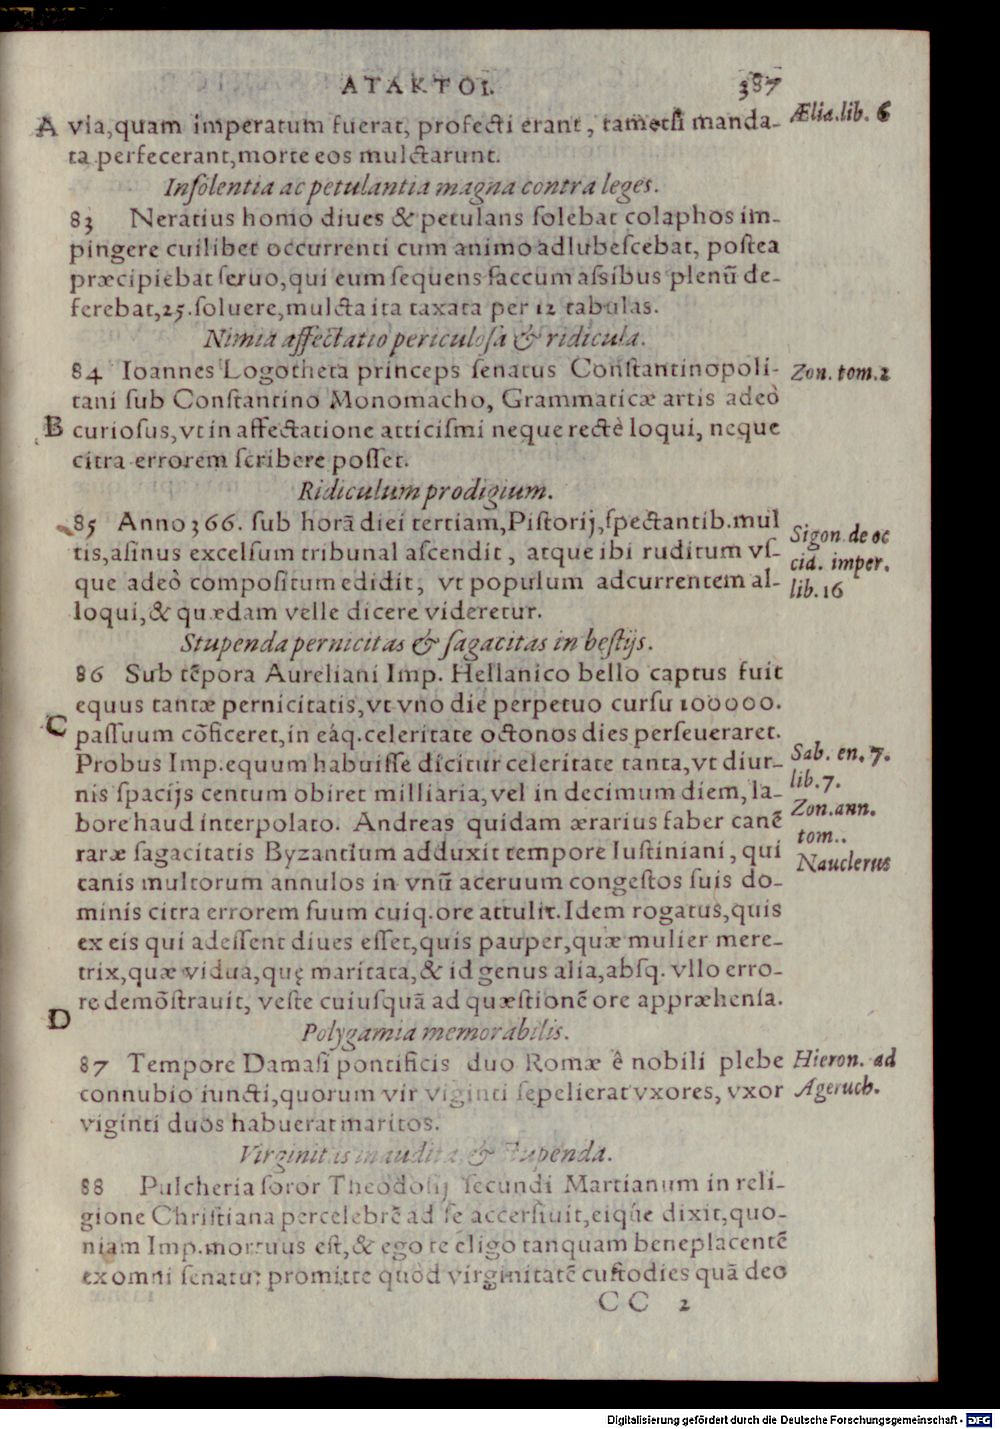 ATAKTOI.
387
A via,quam imperatum fuerat, profecti erant, tametsi manda-
Ælia.lib. 6
ta perfecerant,morte eos mulctarunt.
Insolentia ac petulantia magna contra leges.
83 Neratius homo diues & petulans solebat colaphos im-
pingere cuilibet occurrenti cum animo adlubescebat, postea
præcipiebat seruo,qui eum sequens saccum assibus plenũ de-
ferebat,25.soluere,mulcta ita taxata per 12 tabulas.
Nimia affectatio periculosa & ridicula.
84 Ioannes Logotheta princeps senatus Constantinopoli-
Zon. tom.2
tani sub Constantino Monomacho, Grammaticæ artis adeò
B curiosus,vt in affectatione atticismi neque rectè loqui, neque
citra errorem scribere posset.
Ridiculum prodigium.
85 Anno 366. sub horã diei tertiam,Pistorij,spectantib.mul
Sigon de oc
tis,asinus excelsum tribunal ascendit, atque ibi ruditum vs-
cid. imper.
que adeò compositum edidit, vt populum adcurrentem al-
lib.16
loqui,& quædam velle dicere videretur.
Stupenda pernicitas & sagacitas in bestijs.
86 Sub tẽpora Aureliani Imp. Hellanico bello captus fuit
equus tantæ pernicitatis,vt vno die perpetuo cursu 100000.
C passuum cõficeret,in eáq.celeritate octonos dies perseueraret.
Probus Imp.equum habuisse dicitur celeritate tanta,vt diur-
Sab. en. 7.
lib.7.
nis spacijs centum obiret milliaria,vel in decimum diem,la-
Zon.ann.
bore haud interpolato. Andreas quidam ærarius faber canẽ
tom..
raræ sagacitatis Byzantium adduxit tempore Iustiniani, qui
Nauclerus
canis multorum annulos in vnũ aceruum congestos suis do-
minis citra errorem suum cuiq.ore attulit.Idem rogatus,quis
ex eis qui adessent diues esset,quis pauper,quæ mulier mere-
trix,quæ vidua,quę maritata,& id genus alia,absq. vllo erro-
re demõstrauit, veste cuiusquã ad quæstionẽ ore appræhensa.
D
Polygamia memorabilis.
87 Tempore Damasi pontificis duo Romæ ê nobili plebe
Hieron. ad
connubio iuncti,quorum vir viginti sepelierat vxores, vxor
Ageruch.
viginti duos habuerat maritos.
Virginitas inaudita & stupenda.
88 Pulcheria soror Theodosij secundi Martianum in reli-
gione Christiana percelebrẽ ad se accersiuit,eiq́ue dixit,quo-
niam Imp.mortuus est,& ego te eligo tanquam beneplacentẽ
ex omni senatu: promitte quod virginitatẽ custodies quã deo
CC 2
Digitalisierung gefördert durch die Deutsche Forschungsgemeinschaft - DFG